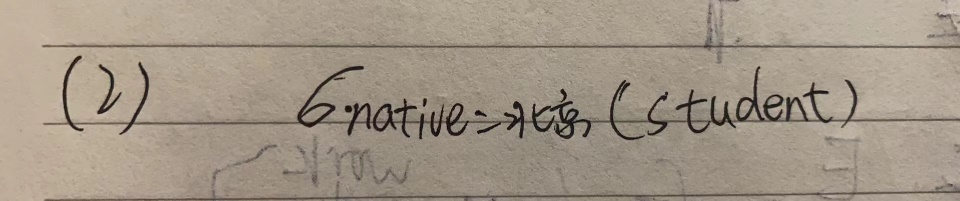 (2) σnative=北京(student)